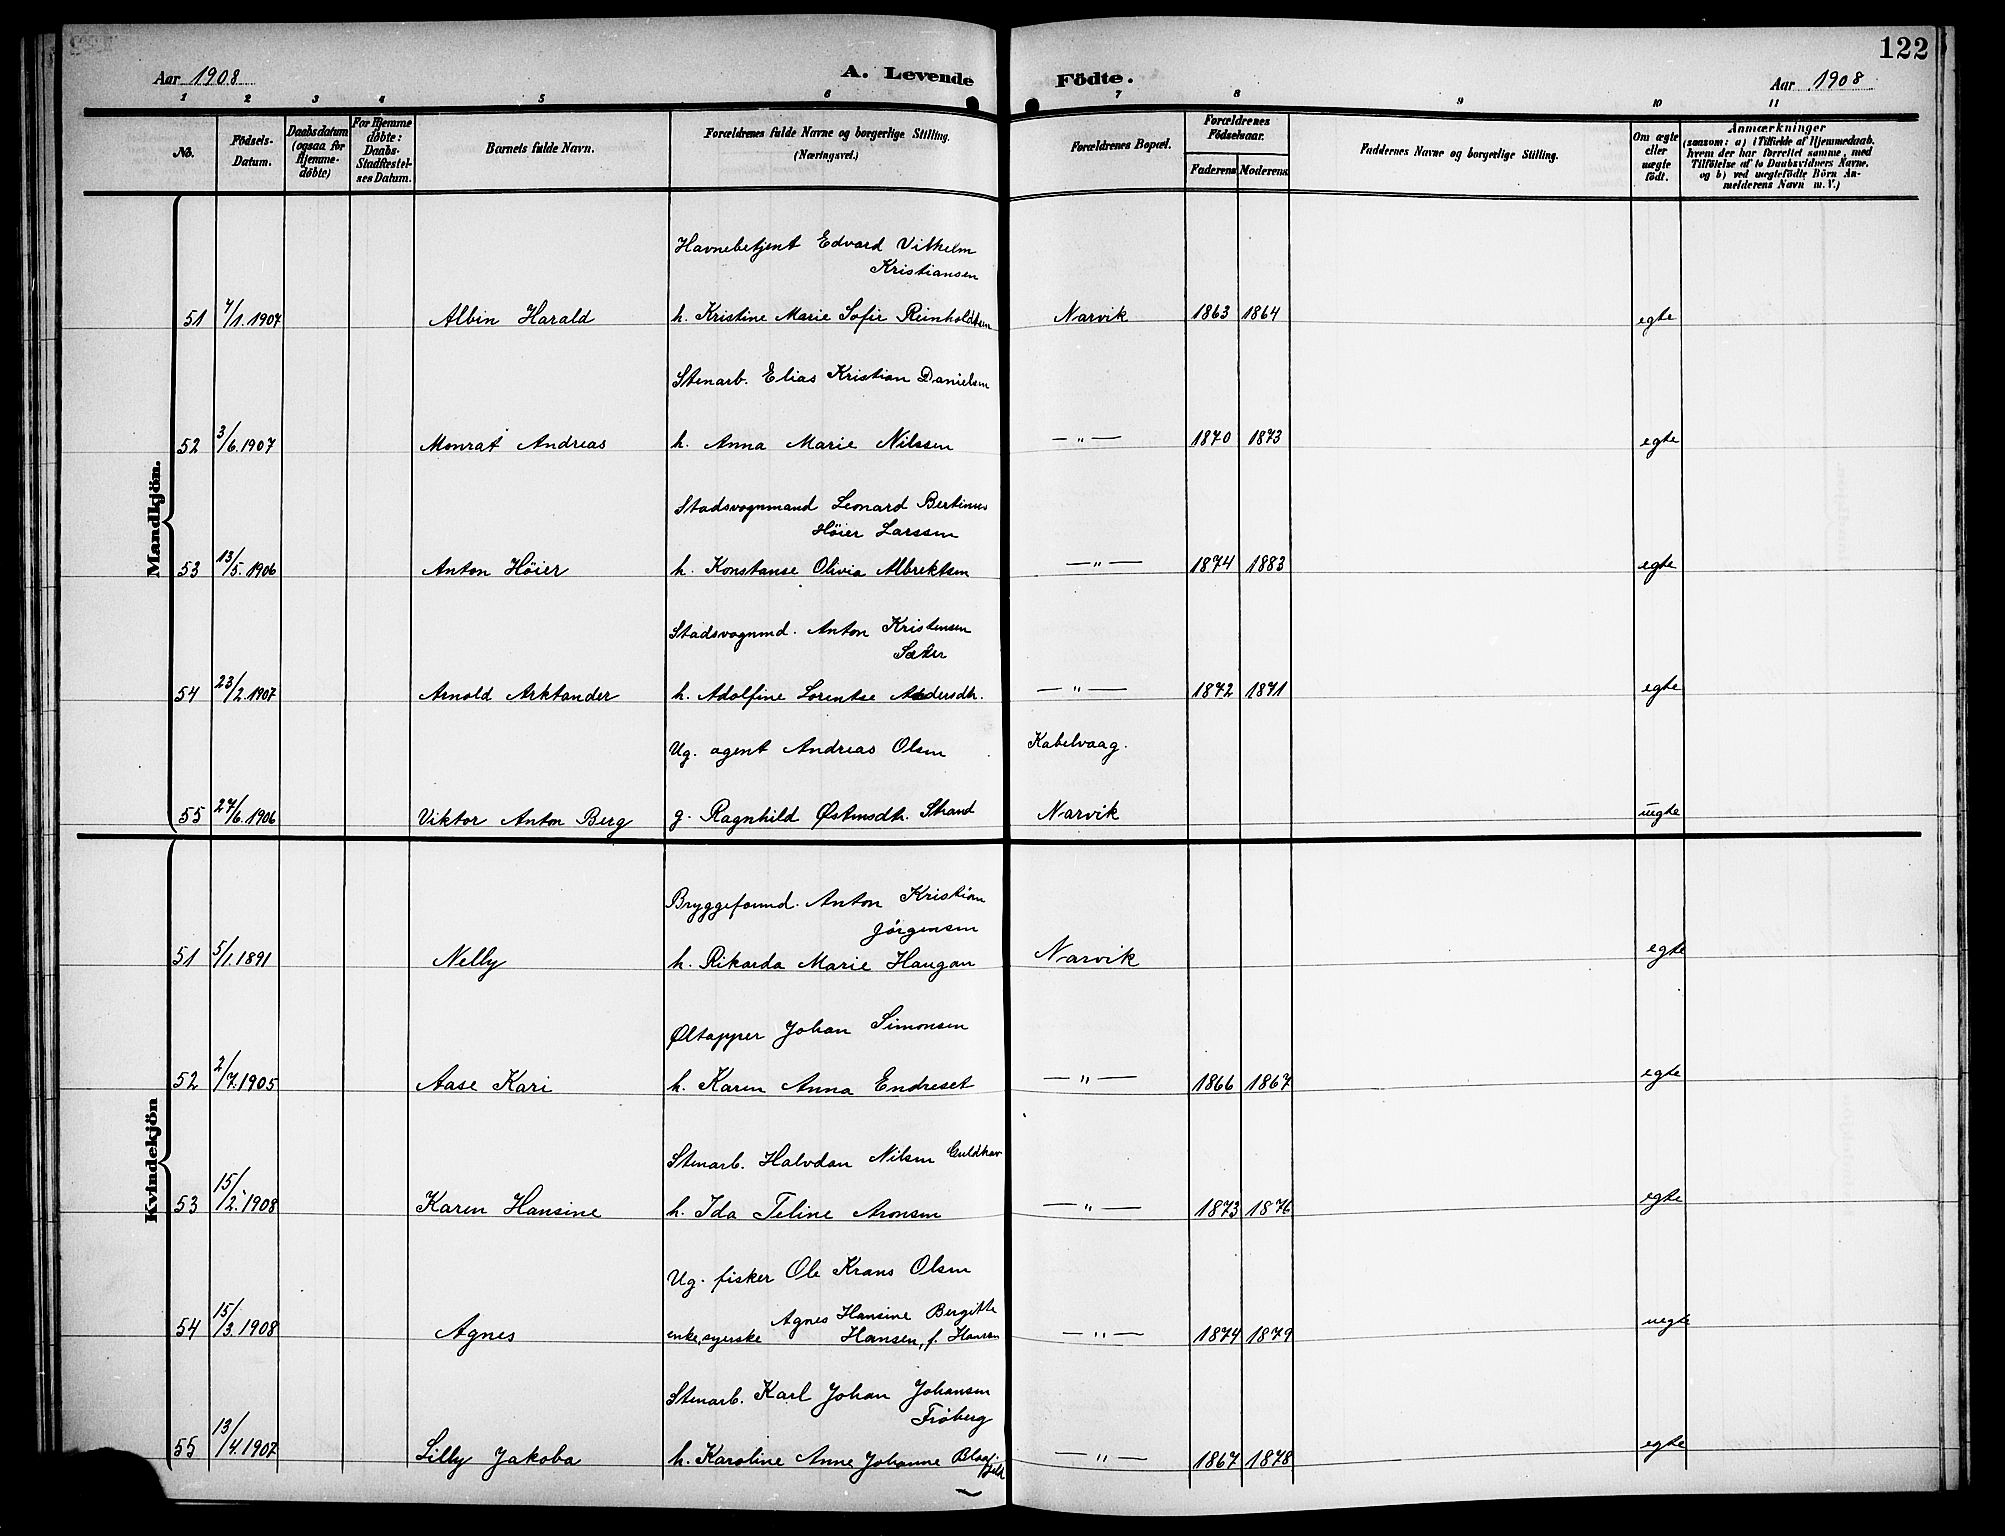 122
Aar 1908
A. Levende Födte.
Aar 1908
1 2 3 4 5 6 7 8 9 10 11
No.
Födsels-Datum.
Daabsdatum (ogsaa for Hjemme-döbte)
For Hjemme döbte: Daabs-Stadfæstel-ses Datum.
Barnets fulde Navn.
Forældrenes fulde Navne og borgerlige Stilling. (Næringsvei.)
Forældrenes Bopæl.
Forældrenes Födselsaar.
Faderens Moderens
Faddernes Navne og borgerlige Stilling.
Om ægte eller uægte födt.
Anmærkninger
(saasom: a) i Tilfælde af Hjemmedaab, hvem der har forrettet samme, med Tilföielse af to Daabsvidners Navne, og b) ved uægtefödte Börn An-melderens Navn m. V.)
Mandkjön.
Havnebetjent Edvard Vilhelm
Kristiansen
51 7/1. 1907 Albin Harald h. Kristine Marie Sofie Reinholdtsen Narvik 1863 1864 egte
Stenarb. Elias Kristian Danielsen
52 3/6. 1907 Monrat Andreas h. Anna Marie Nilssen —"— 1870 1873 egte
Stadsvognmand Leonard Bertinus
Høier Larssen
53 13/5. 1906 Anton Høier h. Konstanse Olivia Albrektsen —"— 1874 1883 egte
Stadsvognmd. Anton Kristensen
Sæter
54 23/2. 1907 Arnold Arktander h. Adolfine Lorentse Andersdh. —"— 1872 1871 egte
Ug. agent Andreas Olsen Kabelvaag.
55 27/6. 1906 Viktor Anton Berg g. Ragnhild Østensdh. Strand Narvik uegte
Kvindekjön
Bryggeformd. Anton Kristian
Jørgensen
51 5/1. 1891 Nelly h. Rikarda Marie Haugan Narvik egte
Øltapper Johan Simonsen
52 2/7. 1905 Aase Kari h. Karen Anna Endreset —"— 1866 1867 egte
Stenarb. Halvdan Nilsen Guldhav
53 15/2. 1908 Karen Hansine h. Ida Teline Aronsen —"— 1873 1876 egte
Ug. fisker Ole Krans Olsen
Agnes Hansine Bergitte
54 15/3. 1908 Agnes enke, syerske Hansen, f. Hansen —"— 1874 1879 uegte
Stenarb. Karl Johan Johansen
Frøberg
55 13/4. 1907 Lilly Jakoba h. Karoline Anne Johanne —"— 1867 1878 egte